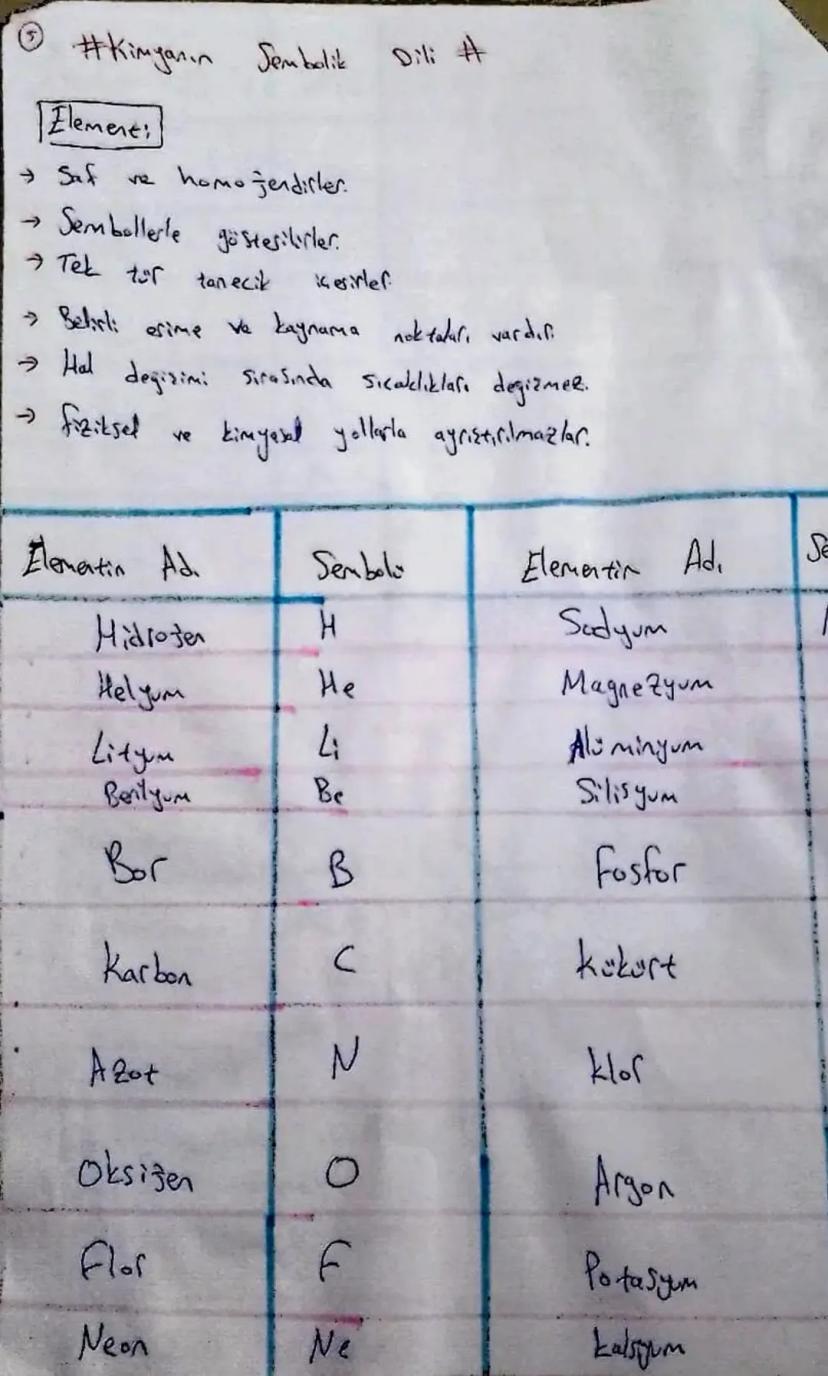 5
#Kimyanın Sembolik Dili #
Element:
→ Saf ve homojendirler.
→ Sembollerle gösterilirler.
→ Tek tür tanecik içerirler.
→ Belirli erime ve kaynama noktaları vardır.
→ Hal değişimi sırasında sıcaklıkları değişmez.
→ Fiziksel ve kimyasal yollarla ayrıştırılmazlar.
Elementin Adı Sembolü Elementin Adı Se
Hidrojen H Sodyum
Helyum He Magnezyum
Lityum Li Alüminyum
Berilyum Be Silisyum
Bor B Fosfor
Karbon C Kükürt
Azot N Klor
Oksijen O Argon
Flor F Potasyum
Neon Ne Kalsiyum